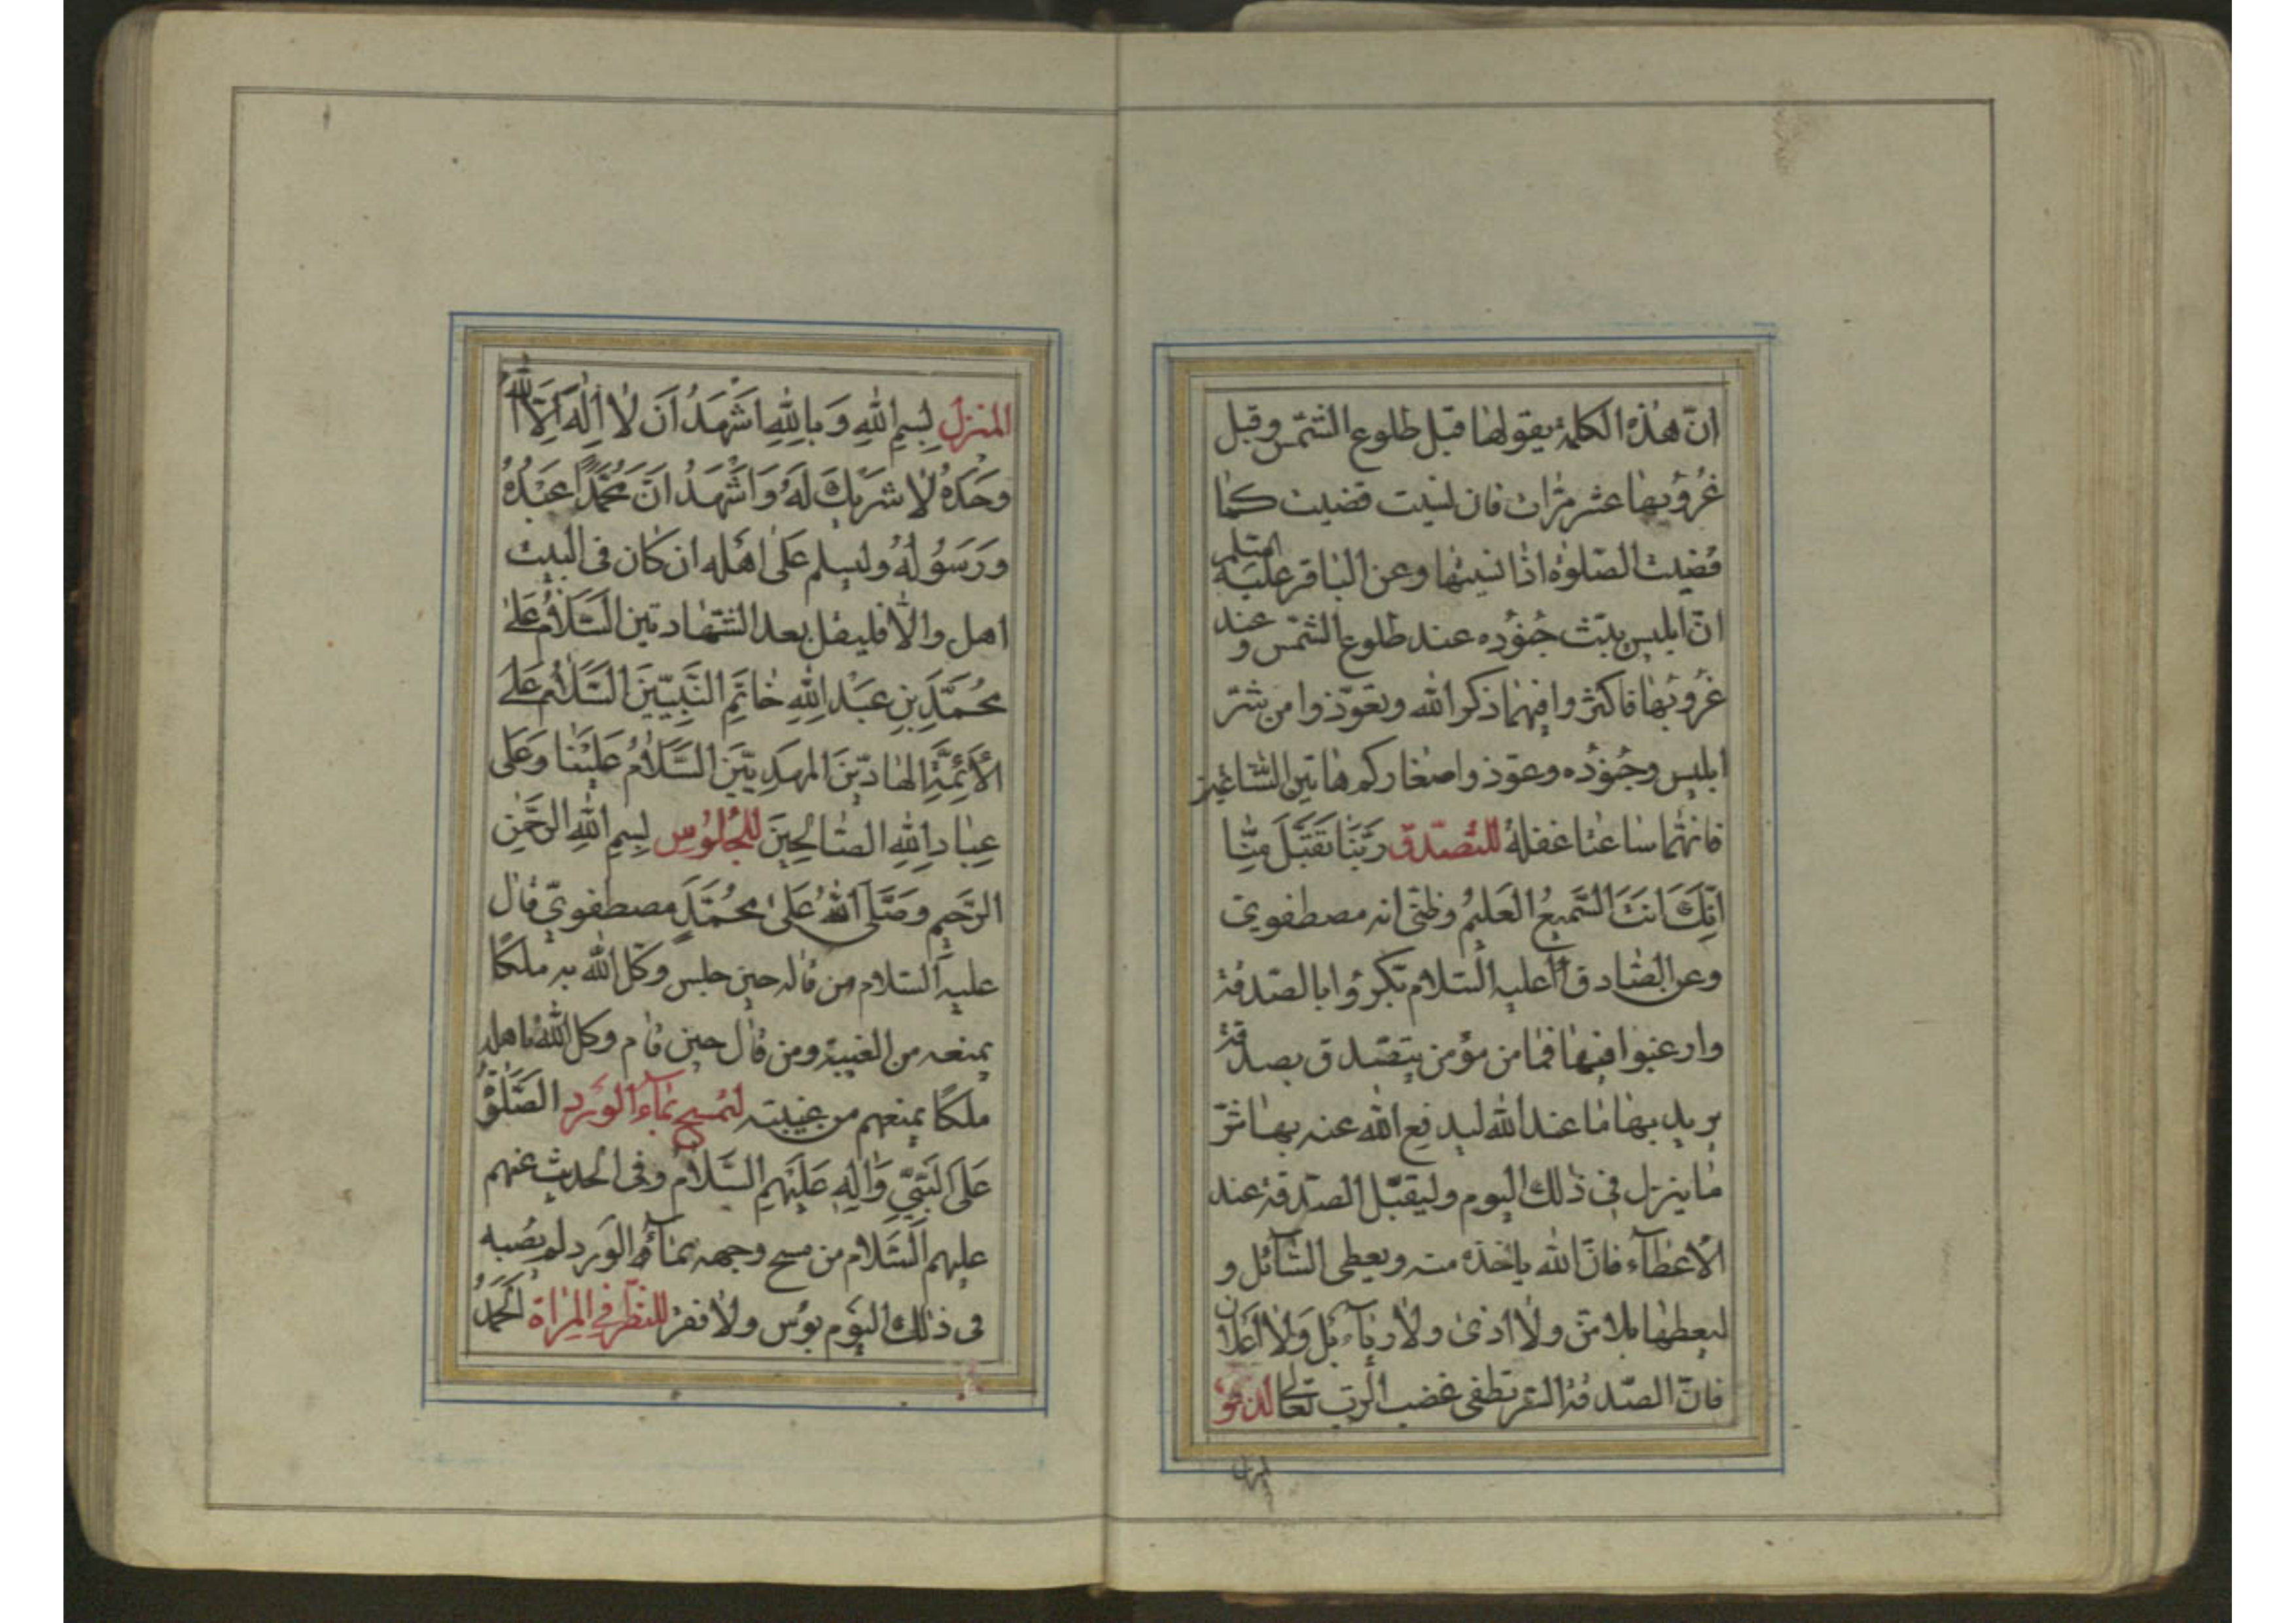 انّ هذه الكلمة يقولها قبل طلوع الشّمس وقبل
غُرُوبها عشر مرّات فان نسيت قضيت كما
قضيت الصّلوة اذا نسيتها وعن الباقر عليه السّلم
انّ ابليس يبثّ جنُوده عند طلوع الشّمس و عند
غرُوبها فاكثروا فيهما ذكر الله وتعوّذوا من شرّ
ابليس وجنُوده وعوّذوا صغاركم هاتين السّاعتين
فانهما ساعتا غفلة للتّصدّق رَبَّنا تَقَبَّل مِنّا
اِنَّكَ اَنتَ السَّميعُ العَليمُ وظنّى انه مصطفويّ
وعن الصّادق عليه السّلام بكّروُا بالصّدقة
وارغبوا فيها فما من مؤمن يتصّدق بصدقة
يريد بها ما عند الله ليدفع الله عنه بها شرّ
ما ينزل فى ذلك اليوم وليقبّل الصّدقة عند
الاعطآء فانّ الله ياخذه منه ويعطى السّآئل و
ليعطها بلا منّ ولا اذى ولا ريآء بل ولا اعلان
فانّ الصّدقة السّر تطفى غضب الربّ تعالى لدخو
المنزل بِسمِ اللهِ وَ بِاللهِ اَشهَدُ اَن لا اِلهَ اِلّا اللّه
وَحدَهُ لا شَريكَ لَهُ وَ اَشهَدُ اَنَّ مُحَمَّداً عَبدُهُ
وَرَسُولُهُ وليسلم عَلى اهله ان كان فى البيت
اهل والّا فليقل بعد الشّهادتين اَلسَّلامُ عَلى
مُحَمَّدِ بنِ عَبدِ اللهِ خاتَمِ النَّبِيّينَ السَّلامُ عَلَى
الأَئِمَّةِ الهادينَ المَهدِيّينَ السَّلامُ عَلَينا وَعَلى
عِبادِ اللهِ الصّالِحينَ للجُلوُس بِسمِ اللهِ الرَّحمنِ
الرَّحيمِ وصَلَّى اللهُ عَلى مُحَمَّدٍ مصطفويّ قال
عليه السّلام من قاله حين جلس وكّل الله به ملكًا
يمنعه من الغيبة ومن قال حين قام وكل الله باهله
ملكًا يمنعهم من غيبته لمسح بمآء الورد الصَّلوةُ
عَلَى النَّبِيِّ وَآلِهِ عَلَيهِمُ السَّلام وفى الحديث عنهم
عليهم السّلام من مسح وجهه بمآء الورد لم يصبه
فى ذلك اليوم بؤس ولا فقر للنظر فى المراة اَلحَمدُ